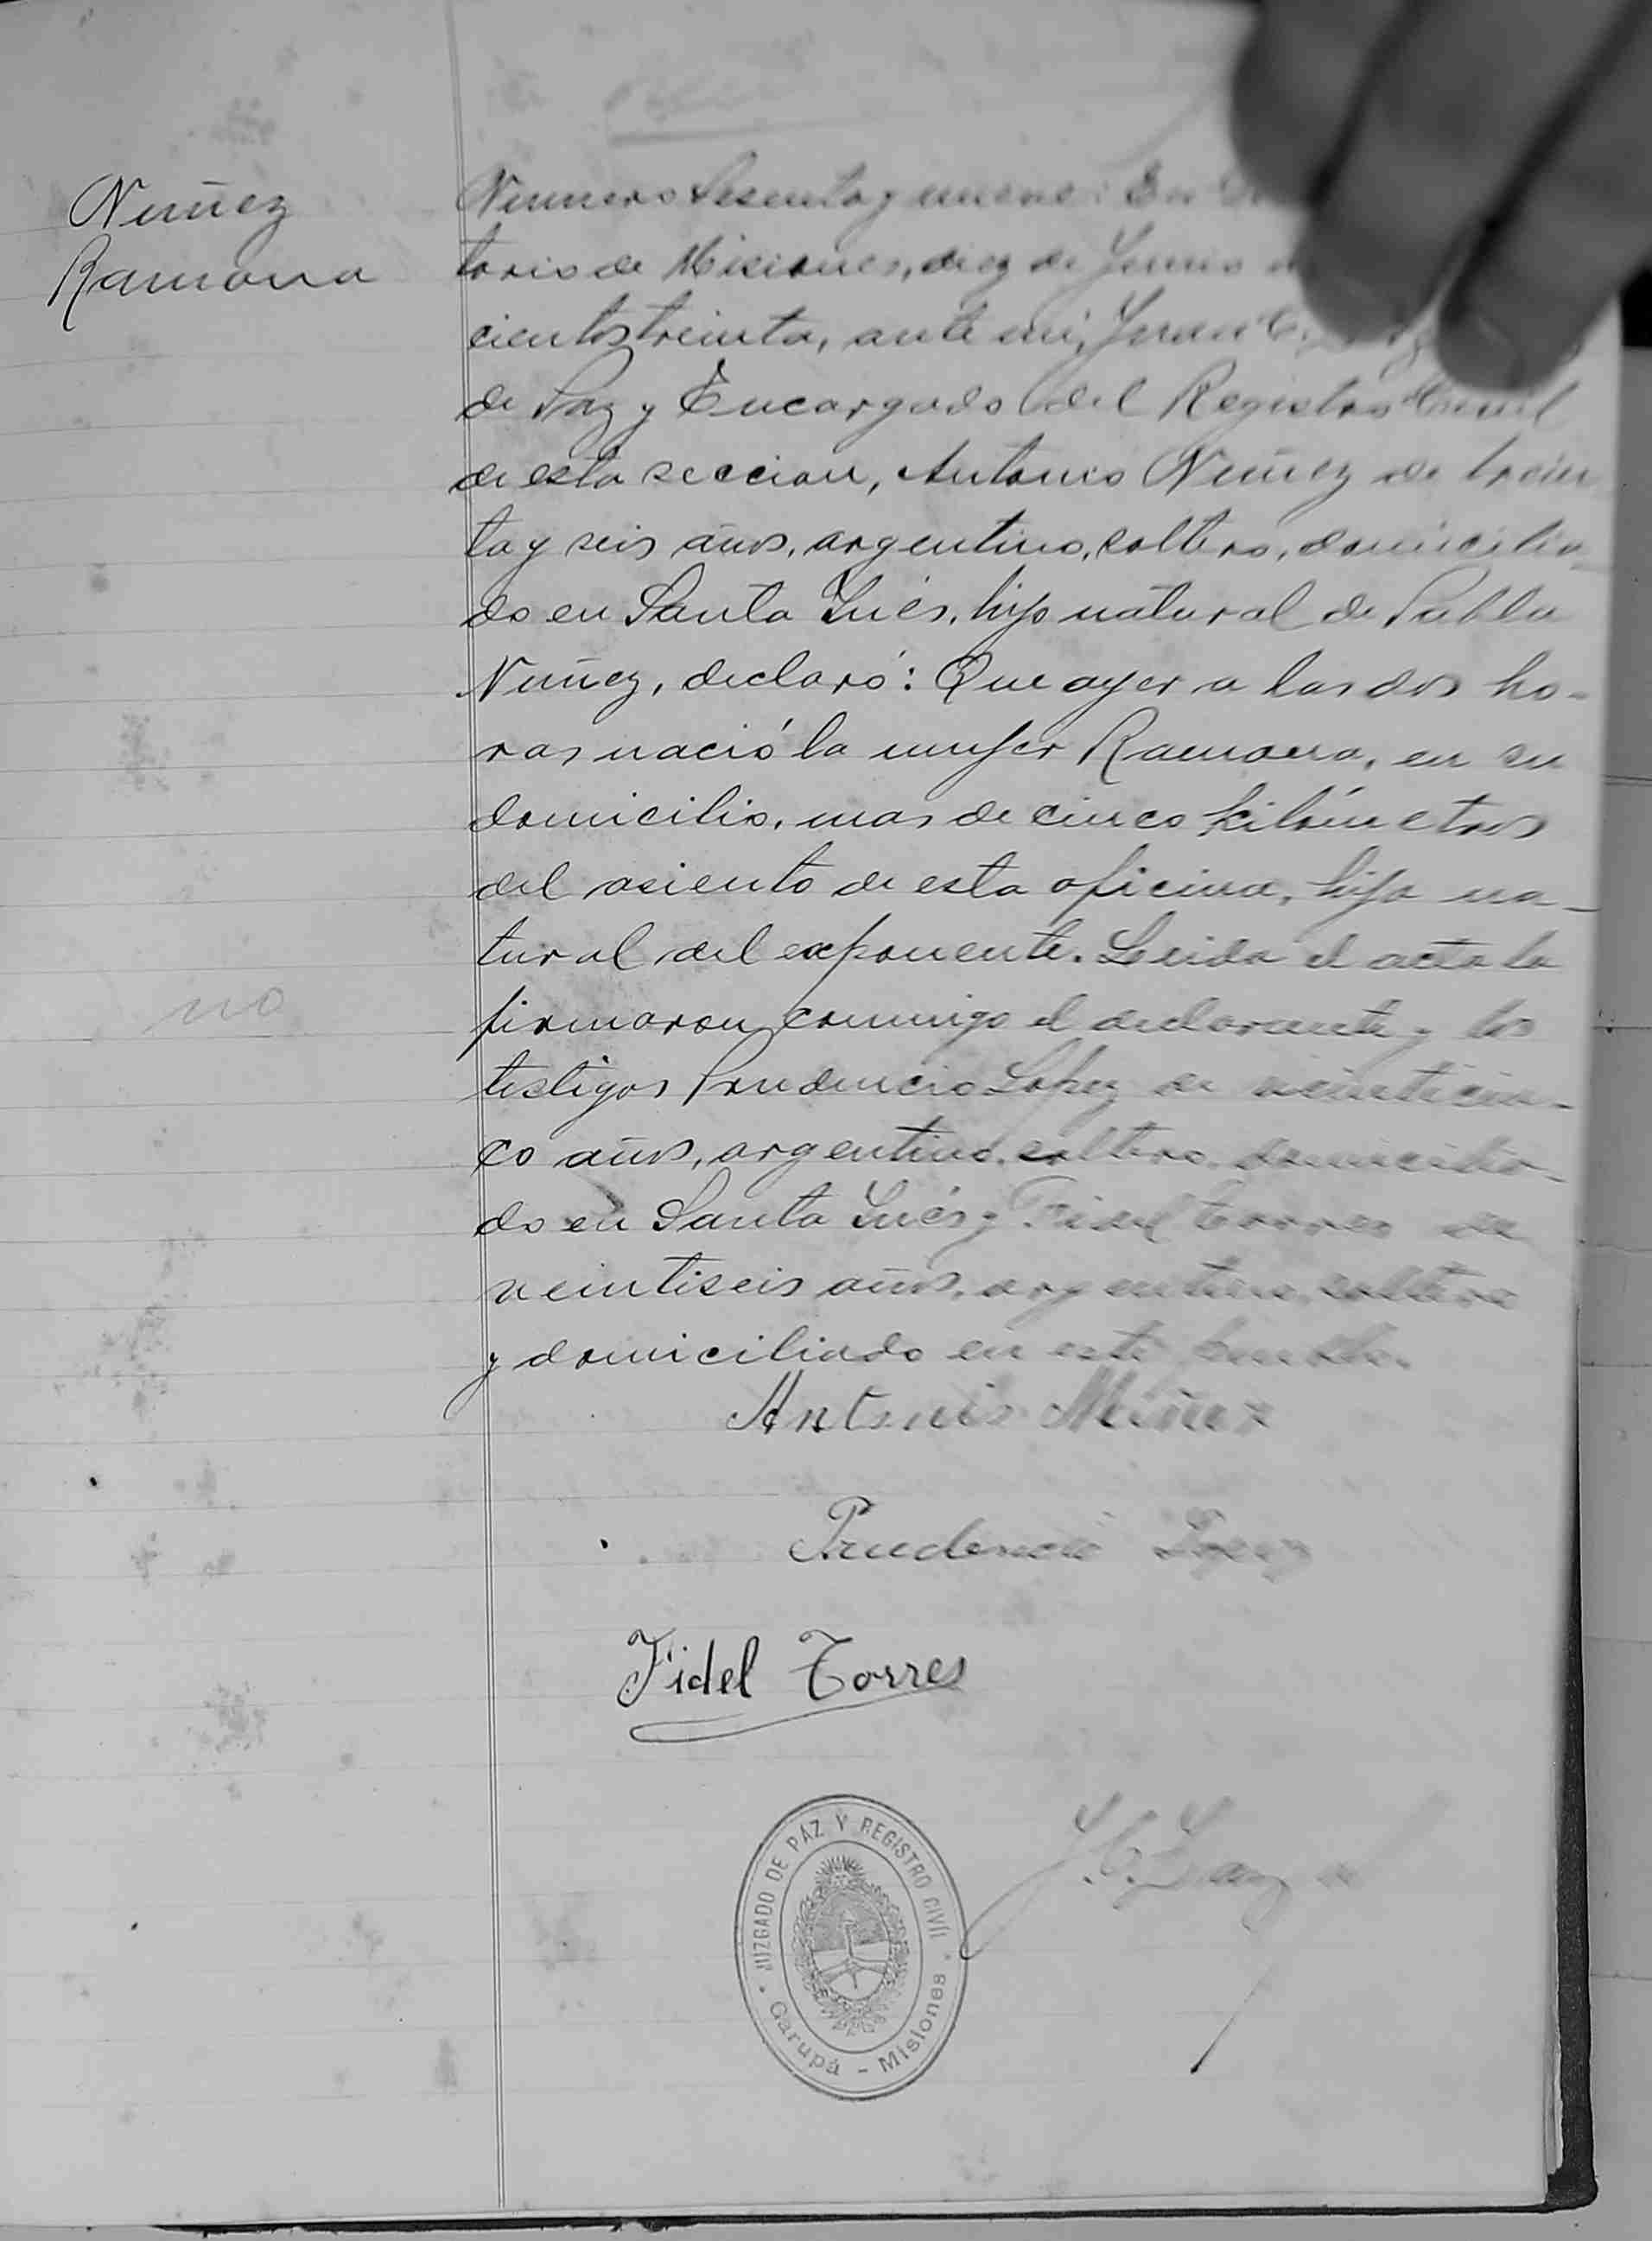 Nuñez
Ramona
Numero Sesenta y nueve: En
torio de Misiones, diez de Junio
cientos treinta, ante mi, Juan C.
de Paz y Encargado del Registro Civil
de esta seccion, Antonio Nuñez de trein
ta y seis años, argentino, soltero, domicilia_
do en Santa Inés, hijo natural de Pabla
Nuñez, declaró: Que ayer a las dos ho-
ras nació la mujer Ramona, en su
domicilio, mas de cinco kilómetros
del asiento de esta oficina, hija na_
tural del exponente. Leida el acta la
no
firmaron conmigo el declarante y los
testigos Prudencio Lopez de veinticin_
co años, argentino, soltero, domicilia_
do en Santa Inés y Fidel Torres de
veintiseis años, argentino, soltero
y domiciliado en este pueblo.
Antonio Núñez
Prudencio Lopez
Fidel Torres
JUZGADO DE PAZ Y REGISTRO CIVIL
Garupá - Misiones